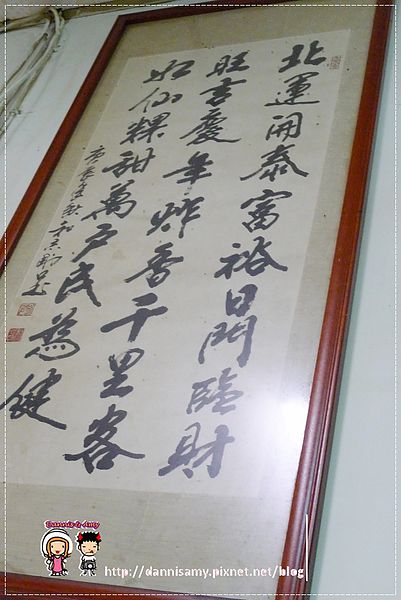 北運開泰富裕日門臨財
旺吉慶年炸香千里客
如仙粿甜萬戶民為健
Dannis & Amy
http://dannisamy.pixnet.net/blog